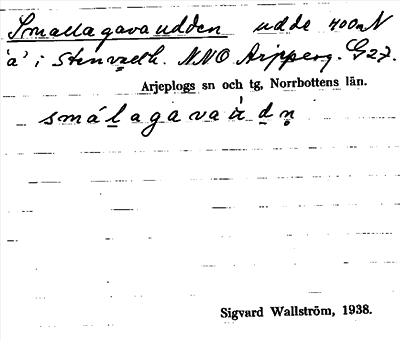 Smallagavaudden udde 400m N
'a' i Stenudth. NNO Arjeplog. G27.
Arjeplogs sn och tg, Norrbottens län.
smálagavaùdṇ
Sigvard Wallström, 1938.